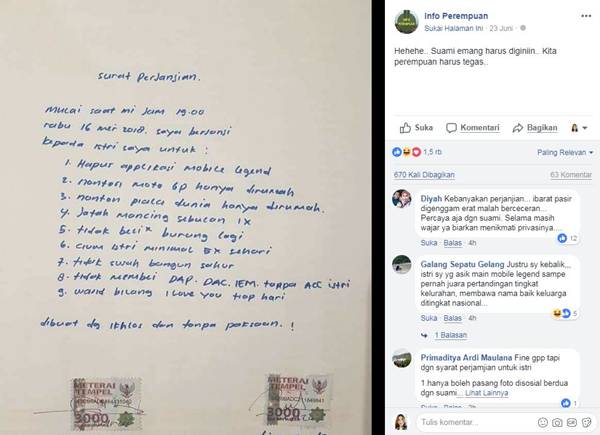 surat Perjanjian.
mulai saat ini Jam 19.00
rabu 16 mei 2018. saya berjanji
kepada istri saya untuk :
1. Hapus applikasi mobile legend
2. nonton moto GP hanya dirumah
3. nonton piala dunia hanya dirumah.
4. Jatah mancing sebulan 1x
5. tidak beli² burung lagi
6. cium istri minimal 5x sehari
7. tidak susah bangun sahur
8. tidak membeli DAP. DAC. IEM. tanpa ACC istri
9. wajib bilang I love you tiap hari
dibuat dg ikhlas dan tanpa paksaan. !
METERAI
TEMPEL
3000
METERAI
TEMPEL
3000
Info Perempuan
Sukai Halaman Ini · 23 Juni ·
Hehehe.. Suami emang harus diginiin.. Kita
perempuan harus tegas..
Suka Komentari Bagikan
1,5 rb Paling Relevan
670 Kali Dibagikan 63 Komentar
Diyah Kebanyakan perjanjian... ibarat pasir
digenggam erat malah berceceran...
Percaya aja dgn suami. Selama masih
wajar ya biarkan menikmati privasinya....
Suka · Balas · 4h 12
Galang Sepatu Gelang Justru sy kebalik,,,
istri sy yg asik main mobile legend sampe
pernah juara pertandingan tingkat
kelurahan, membawa nama baik keluarga
ditingkat nasional...
Suka · Balas · 4h 5
1 Balasan
Primaditya Ardi Maulana Fine gpp tapi
dgn syarat perjamjian untuk istri
1.hanya boleh pasang foto disosial berdua
dgn suami... Lihat Lainnya
Suka · Balas · 2h 2
Tulis komentar...